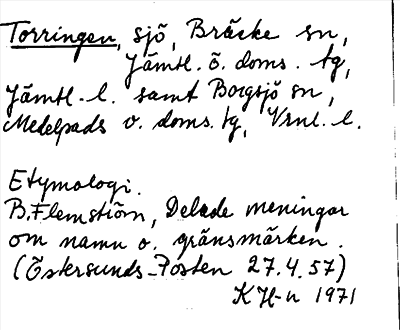 Torringen, sjö, Bräcke sn,
Jämtl. ö. doms. tg,
Jämtl. l. samt Borgsjö sn,
Medelpads v. doms. tg, Vrnl. l.
Etymologi.
B. Flemström, Delade meningar
om namn o. gränsmärken.
(Östersunds-Posten 27.4.57)
KH-n 1971